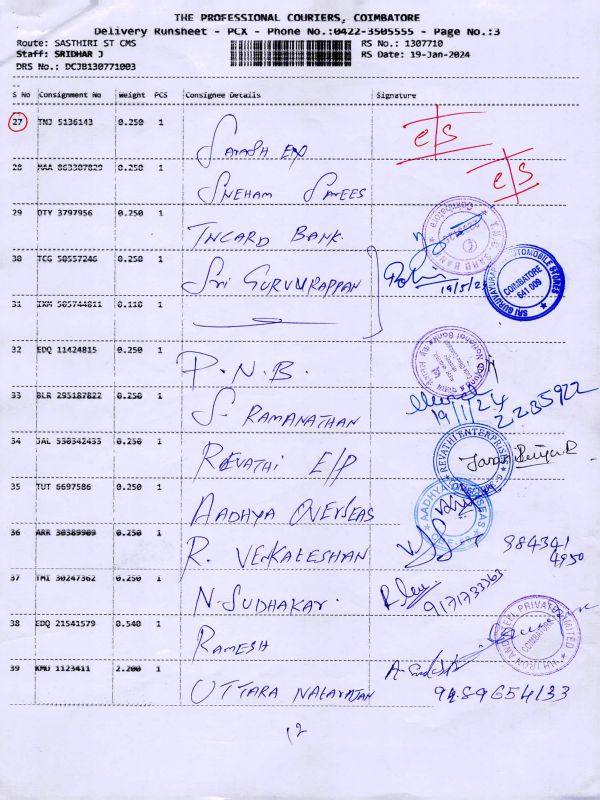 THE PROFESSIONAL COURIERS, COIMBATORE
Delivery Runsheet - PCX - Phone No.:0422-3505555 - Page No.:3
Route: SASTHIRI ST CMS RS No.: 1307710
Staff: SRIDHAR J RS Date: 19-Jan-2024
DRS No.: DCJB130771003
S No Consignment No Weight PCS Consignee Details Signature
27 TNJ 5136143 0.250 1
28 MAA 863307829 0.250 1 SNEHAM
29 OTY 3797956 0.250 1 BANK
30 TCG 50557246 0.250 1 SRI GURUVURAPPAN
31 505744811 0.110 1
19/5/24
SRI GURUVAYURAPPAN AUTOMOBILE STORES
COIMBATORE
641 009
32 EDQ 11424815 0.250 1 P.N.B.
33 BLR 295187822 0.250 1 S. RAMANATHAN
19/1/24 2235922
34 JAL 530342433 0.250 1 REVATHI E/P
REVATHI ENTERPRISES
35 TUT 6697586 0.250 1 AADHYA OVERSEAS
AADHYA OVERSEAS
36 ARR 30389909 0.250 1 R. VENKATESHAN 984341
4950
37 TMI 30247362 0.250 1 N. SUDHAKAR.
9171733363
38 EDQ 21541579 0.540 1 RAMESH
PRIVATE LIMITED
COIMBATORE
39 KMU 1123411 2.200 1 UTTARA NATARAJAN
9489654133
12